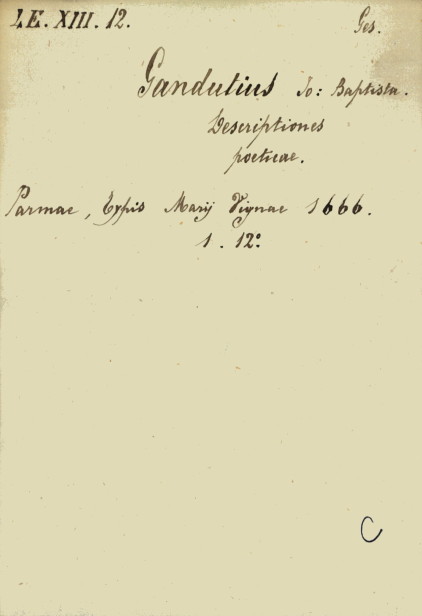 LE. XIII. 12.
Ges.
Gandutius Jo: Baptista.
Descriptiones
poeticae.
Parmae, Typis Marij Vignae 1666.
1. 12º
C